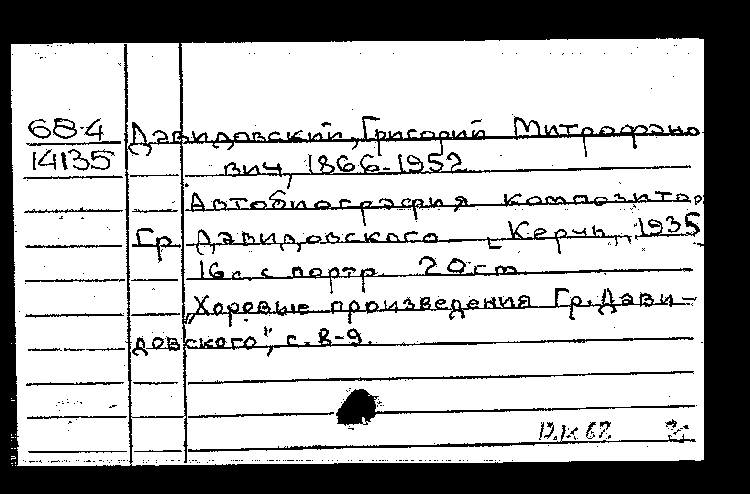 68-4
14135
Давидовский, Григорий Митрофано
вич, 1866-1952
Автобиография композитор
Гр Давидовского [Керчь, 1935
16 с. с портр. 20 cm.
„Хоровые произведения Гр. Дави-
довского", с. 8-9.